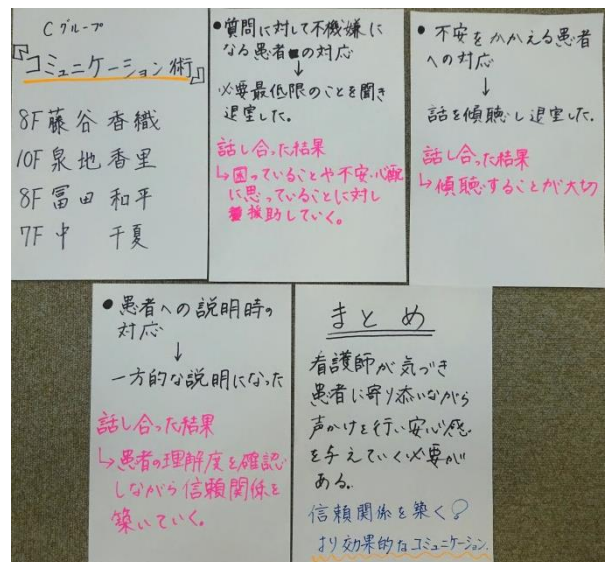 Cグループ
『コミュニケーション術』
8F 藤谷 香織
10F 泉地 香里
8F 冨田 和平
7F 中 千夏
●質問に対して不機嫌に
なる患者の対応
↓
必要最低限のことを聞き
退室した。
話し合った結果
↳困っていることや不安・心配
に思っていることに対し
援助していく。
●不安をかかえる患者
への対応
↓
話を傾聴し退室した。
話し合った結果
↳傾聴することが大切
●患者への説明時の
対応
↓
一方的な説明になった
話し合った結果
↳患者の理解度を確認
しながら信頼関係を
築いていく。
まとめ
看護師が気づき
患者に寄り添いながら
声かけを行い安心感
を与えていく必要が
ある。
信頼関係を築く
より効果的なコミュニケーション.